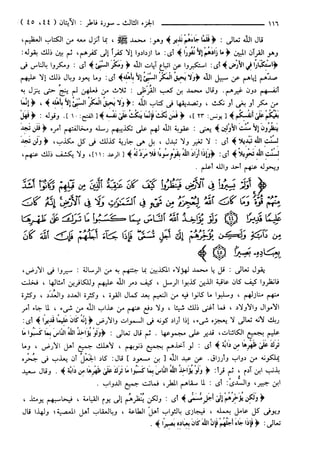 ١١٦ الجزء الثالث - سورة فاطر : الآيتان ( ٤٤ ، ٤٥ )
قال اللّه تعالى : ﴿فَلَمَّا جَاءَهُمْ نَذِيرٌ﴾ وهو: محمد ﷺ ، بما أنزل معه من الكتاب العظيم،
وهو القرآن المبين ﴿مَّا زَادَهُمْ إِلَّا نُفُورًا﴾ أي: ما ازدادوا إلا كفراً إلى كفرهم، ثم بين ذلك بقوله:
﴿اسْتِكْبَارًا فِي الْأَرْضِ﴾ أي: استكبروا عن اتباع آيات اللّه ﴿وَمَكْرَ السَّيِّئِ﴾ أي : ومكروا بالناس في
صدِّهم إياهم عن سبيل اللّه ﴿وَلَا يَحِيقُ الْمَكْرُ السَّيِّئُ إِلَّا بِأَهْلِهِ﴾ أي: وما يعود وبال ذلك إلا عليهم
أنفسهم دون غيرهم. وقال محمد بن كعب القُرَظي : ثلاث من فعلهن لم ينجُ حتى ينزل به
من مكر أو بغى أو نكث ، وتصديقها في كتاب اللّه : ﴿وَلَا يَحِيقُ الْمَكْرُ السَّيِّئُ إِلَّا بِأَهْلِهِ﴾ ، ﴿إِنَّمَا
بَغْيُكُمْ عَلَىٰ أَنفُسِكُم﴾ [يونس : ٢٣]، ﴿فَمَن نَّكَثَ فَإِنَّمَا يَنكُثُ عَلَىٰ نَفْسِهِ﴾ [الفتح : ١٠]. وقوله : ﴿فَهَلْ
يَنظُرُونَ إِلَّا سُنَّتَ الْأَوَّلِينَ﴾ يعنى : عقوبة اللّه لهم على تكذيبهم رسله ومخالفتهم أمره ﴿فَلَن تَجِدَ
لِسُنَّتِ اللَّهِ تَبْدِيلًا﴾ أي : لا تغير ولا تبدل ، بل هي جارية كذلك في كل مكذب، ﴿وَلَن تَجِدَ
لِسُنَّتِ اللَّهِ تَحْوِيلًا﴾ أي: ﴿وَإِذَا أَرَادَ اللَّهُ بِقَوْمٍ سُوءًا فَلَا مَرَدَّ لَهُ﴾ [الرعد : ١١]، ولا يكشف ذلك عنهم،
ويحوله عنهم أحد والله أعلم .
﴿أَوَلَمْ يَسِيرُوا فِي الْأَرْضِ فَيَنظُرُوا كَيْفَ كَانَ عَاقِبَةُ الَّذِينَ مِن قَبْلِهِمْ وَكَانُوا أَشَدَّ مِنْهُمْ
قُوَّةً وَمَا كَانَ اللَّهُ لِيُعْجِزَهُ مِن شَيْءٍ فِي السَّمَاوَاتِ وَلَا فِي الْأَرْضِ إِنَّهُ كَانَ عَلِيمًا قَدِيرًا ۝
وَلَوْ يُؤَاخِذُ اللَّهُ النَّاسَ بِمَا كَسَبُوا مَا تَرَكَ عَلَىٰ ظَهْرِهَا مِن دَابَّةٍ وَلَٰكِن يُؤَخِّرُهُمْ إِلَىٰ
أَجَلٍ مُّسَمًّى فَإِذَا جَاءَ أَجَلُهُمْ فَإِنَّ اللَّهَ كَانَ بِعِبَادِهِ بَصِيرًا ۝﴾
يقول تعالى : قل يا محمد لهؤلاء المكذبين بما جئتهم به من الرسالة : سيروا فى الارض،
فانظروا كيف كان عاقبة الذين كذبوا الرسل ، كيف دمر اللّه عليهم وللكافرين أمثالها ، فخلت
منهم منازلهم ، وسلبوا ما كانوا فيه من النعيم بعد كمال القوة ، وكثرة العدد والعُدَد ، وكثرة
الأموال والأولاد ، فما أغنى ذلك شيئا ، ولا دفع عنهم من عذاب اللّه من شيء ، لما جاء أمر
ربك لأنه تعالى لا يعجزه شىء، إذا أراد كونه فى السموات والارض ﴿إِنَّهُ كَانَ عَلِيمًا قَدِيرًا﴾ أي:
عليم بجميع الكائنات، قدير على مجموعها . ثم قال تعالى : ﴿وَلَوْ يُؤَاخِذُ اللَّهُ النَّاسَ بِمَا كَسَبُوا مَا
تَرَكَ عَلَىٰ ظَهْرِهَا مِن دَابَّةٍ﴾ أي : لو آخذهم بجميع ذنوبهم ، لأهلك جميع أهل الارض ، وما
يملكونه من دواب وأرزاق. عن عبد اللّه [ بن مسعود ] قال: كاد الجُعَل أن يعذب فى جُحْره
بذنب ابن آدم ، ثم قرأ: ﴿وَلَوْ يُؤَاخِذُ اللَّهُ النَّاسَ بِمَا كَسَبُوا مَا تَرَكَ عَلَىٰ ظَهْرِهَا مِن دَابَّةٍ﴾ . وقال سعيد
ابن جبير، والسدِّيّ: أي : لما سقاهم المطر، فماتت جميع الدواب .
﴿وَلَٰكِن يُؤَخِّرُهُمْ إِلَىٰ أَجَلٍ مُّسَمًّى﴾ أي : ولكن يُنظرهُم إلى يوم القيامة ، فيحاسبهم يومئذ ،
ويوفى كل عامل بعمله ، فيجازى بالثواب أهلَ الطاعة ، وبالعقاب أهلَ المعصية؛ ولهذا قال
تعالى: ﴿فَإِذَا جَاءَ أَجَلُهُمْ فَإِنَّ اللَّهَ كَانَ بِعِبَادِهِ بَصِيرًا﴾ .